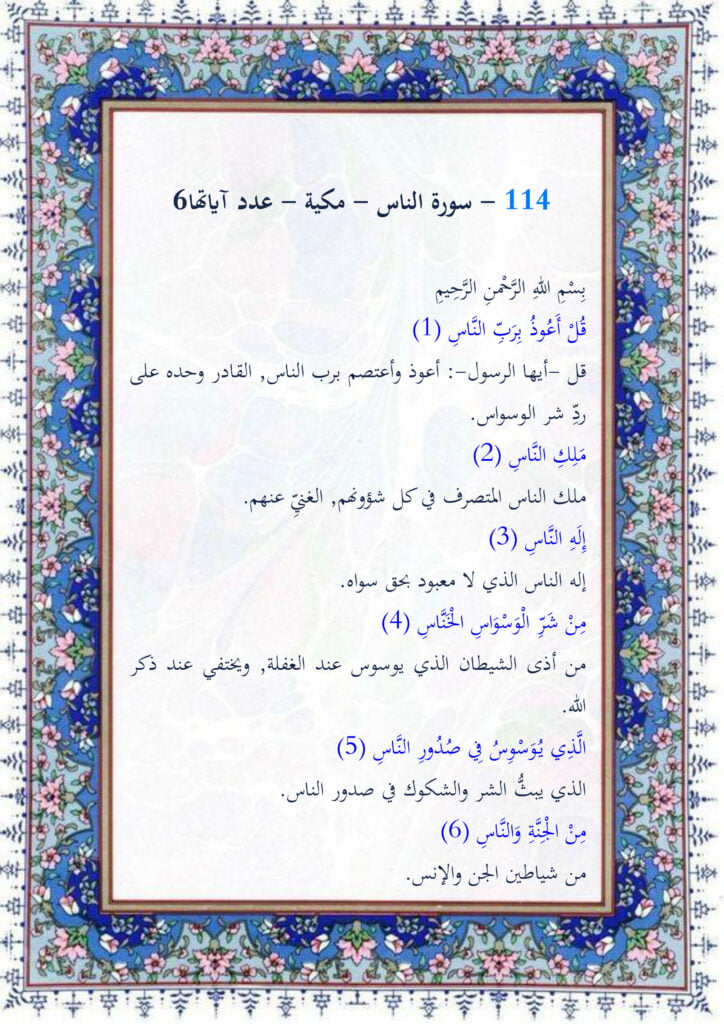 114 – سورة الناس – مكية – عدد آياتها6
بِسْمِ اللهِ الرَّحْمنِ الرَّحِيمِ
قُلْ أَعُوذُ بِرَبِّ النَّاسِ (1)
قل -أيها الرسول-: أعوذ وأعتصم برب الناس, القادر وحده على
ردِّ شر الوسواس.
مَلِكِ النَّاسِ (2)
ملك الناس المتصرف في كل شؤونهم, الغنيِّ عنهم.
إِلَهِ النَّاسِ (3)
إله الناس الذي لا معبود بحق سواه.
مِنْ شَرِّ الْوَسْوَاسِ الْخَنَّاسِ (4)
من أذى الشيطان الذي يوسوس عند الغفلة, ويختفي عند ذكر
الله.
الَّذِي يُوَسْوِسُ فِي صُدُورِ النَّاسِ (5)
الذي يبثُّ الشر والشكوك في صدور الناس.
مِنْ الْجِنَّةِ وَالنَّاسِ (6)
من شياطين الجن والإنس.